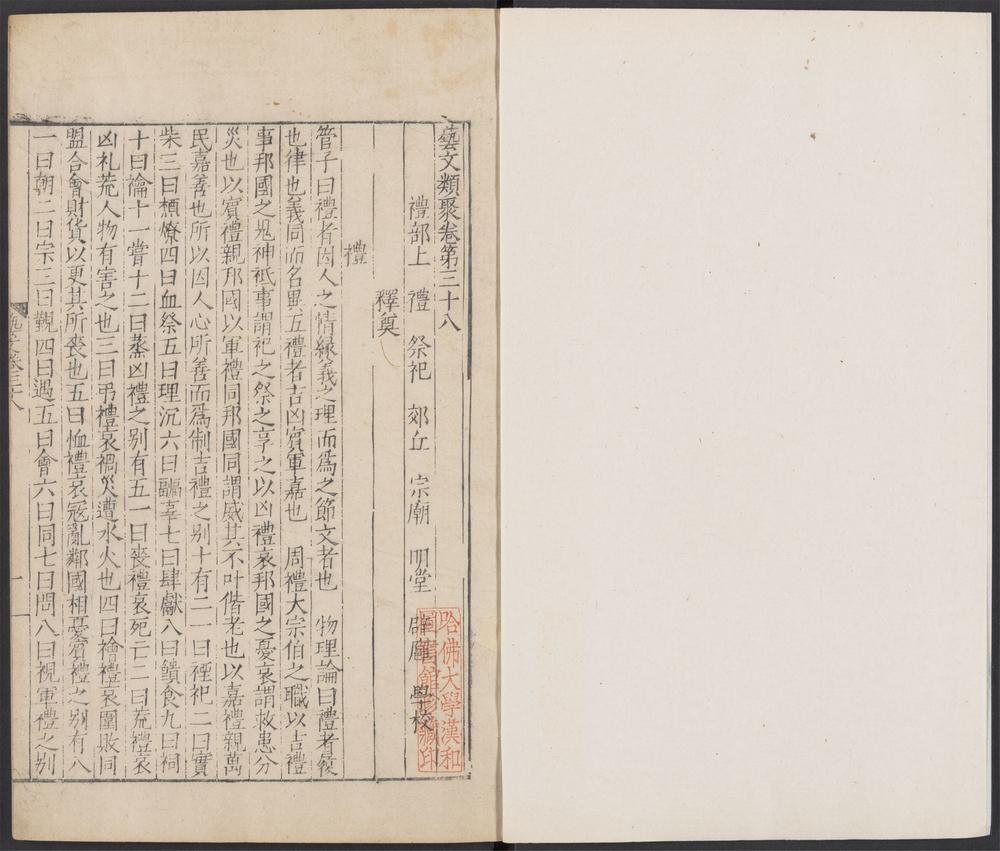 藝文類聚卷第三十八
禮部上 禮 祭祀 郊丘 宗廟 明堂 辟廱 學校
釋奠
禮
管子曰禮者因人之情緣義之理而爲之節文者也 物理論曰禮者履
也律也義同而名異五禮者吉凶賓軍嘉也 周禮大宗伯之職以吉禮
事邦國之鬼神祇事謂祀之祭之享之以凶禮哀邦國之憂哀謂救患分
災也以賓禮親邦國以軍禮同邦國同謂威其不叶僭老也以嘉禮親萬
民嘉善也所以因人心所善而爲制吉禮之别十有二一曰禋祀二曰實
柴三曰槱燎四曰血祭五曰理沉六曰疈辜七曰肆獻八曰饋食九曰祠
十曰禴十一嘗十二曰蒸凶禮之别有五一曰喪禮哀死亡二曰荒禮哀
凶礼荒人物有害之也三曰弔禮哀禍災遭水火也四曰襘禮哀圍敗同
盟合會財貨以更其所喪也五曰恤禮哀冦亂鄰國相憂賓禮之别有八
一曰朝二曰宗三曰覲四曰遇五曰會六曰同七曰問八曰視軍禮之别
卷三十八
一
哈佛大學漢和
圖書館珍藏印